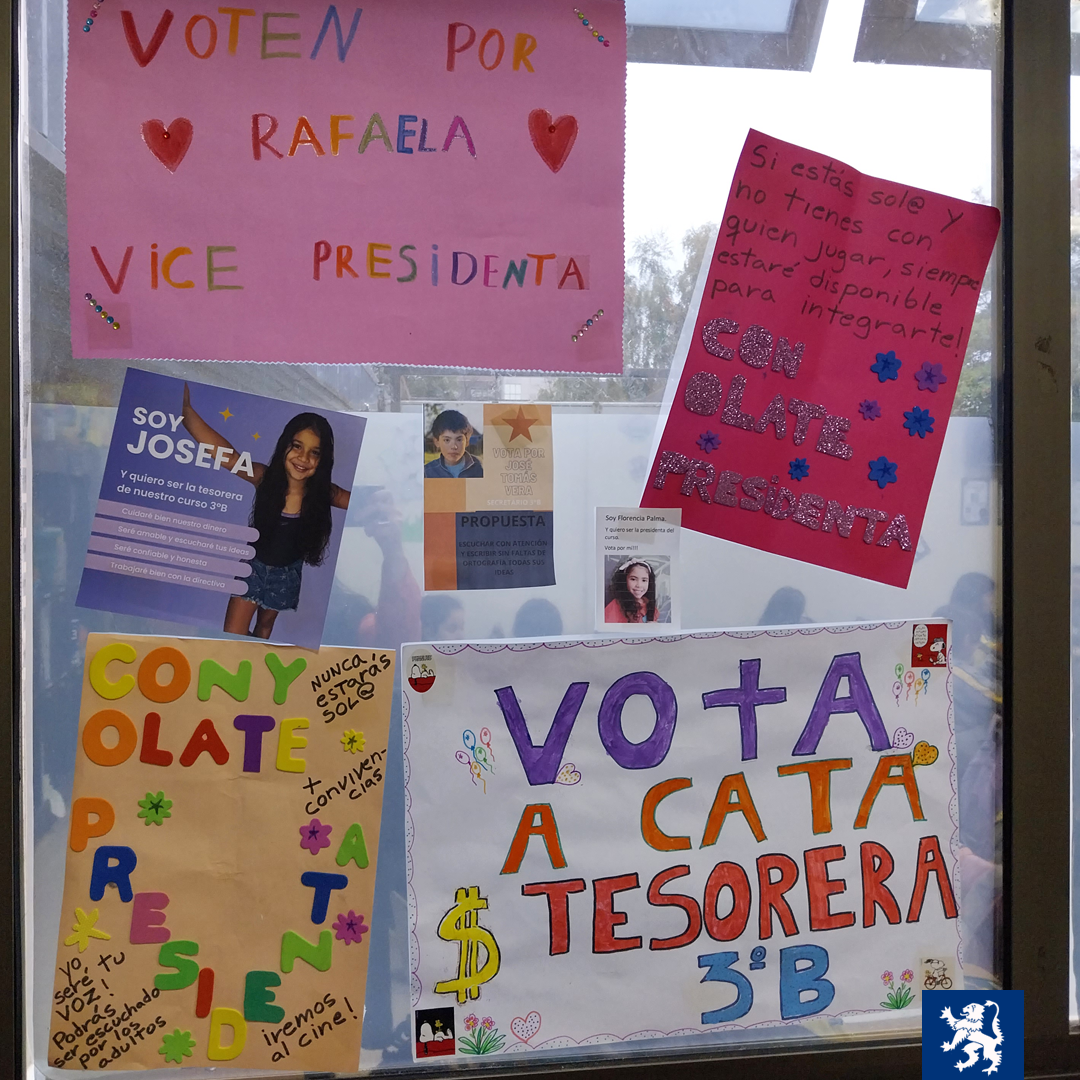 VOTEN POR
RAFAELA
VICE PRESIDENTA
Si estás sol@ y
no tienes con
quien jugar, siempre
estaré disponible
para integrarte!
CON
OLATE
PRESIDENTA
SOY
JOSEFA
Y quiero ser la tesorera
de nuestro curso 3ºB
Cuidaré bien nuestro dinero
Seré amable y escucharé tus ideas
Seré confiable y honesta
Trabajaré bien con la directiva
VOTA POR
JOSÉ
TOMÁS
VERA
SECRETARIO 3ºB
PROPUESTA
ESCUCHAR CON ATENCIÓN
Y ESCRIBIR SIN FALTAS DE
ORTOGRAFÍA TODAS SUS
IDEAS.
Soy Florencia Palma.
Y quiero ser la presidenta del
curso.
Vota por mi!!!
CONY
OLATE
PRESIDENTA
NUNCA
estarás
SOL@
+
conviven-
cias
yo
seré tu
VOZ!
Podrás
ser escuchado
por los
adultos
iremos
al cine!
VOTA
A CATA
TESORERA
$
3º B